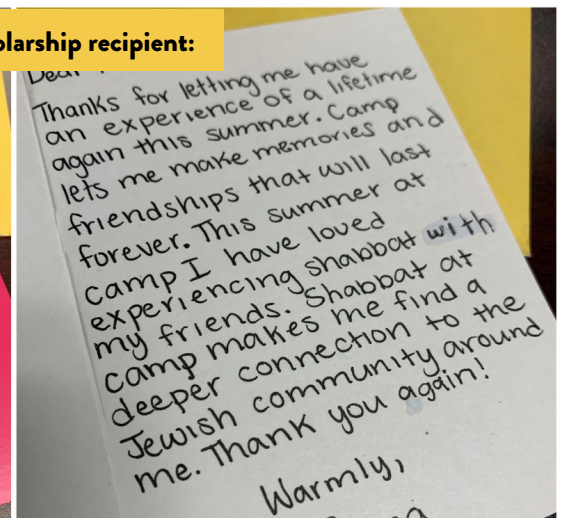 recipient:
Dear
Thanks for letting me have
an experience of a lifetime
again this summer. Camp
lets me make memories and
friendships that will last
forever. This summer at
camp I have loved
experiencing shabbat with
my friends. Shabbat at
camp makes me find a
deeper connection to the
Jewish community around
me. Thank you again!
Warmly,